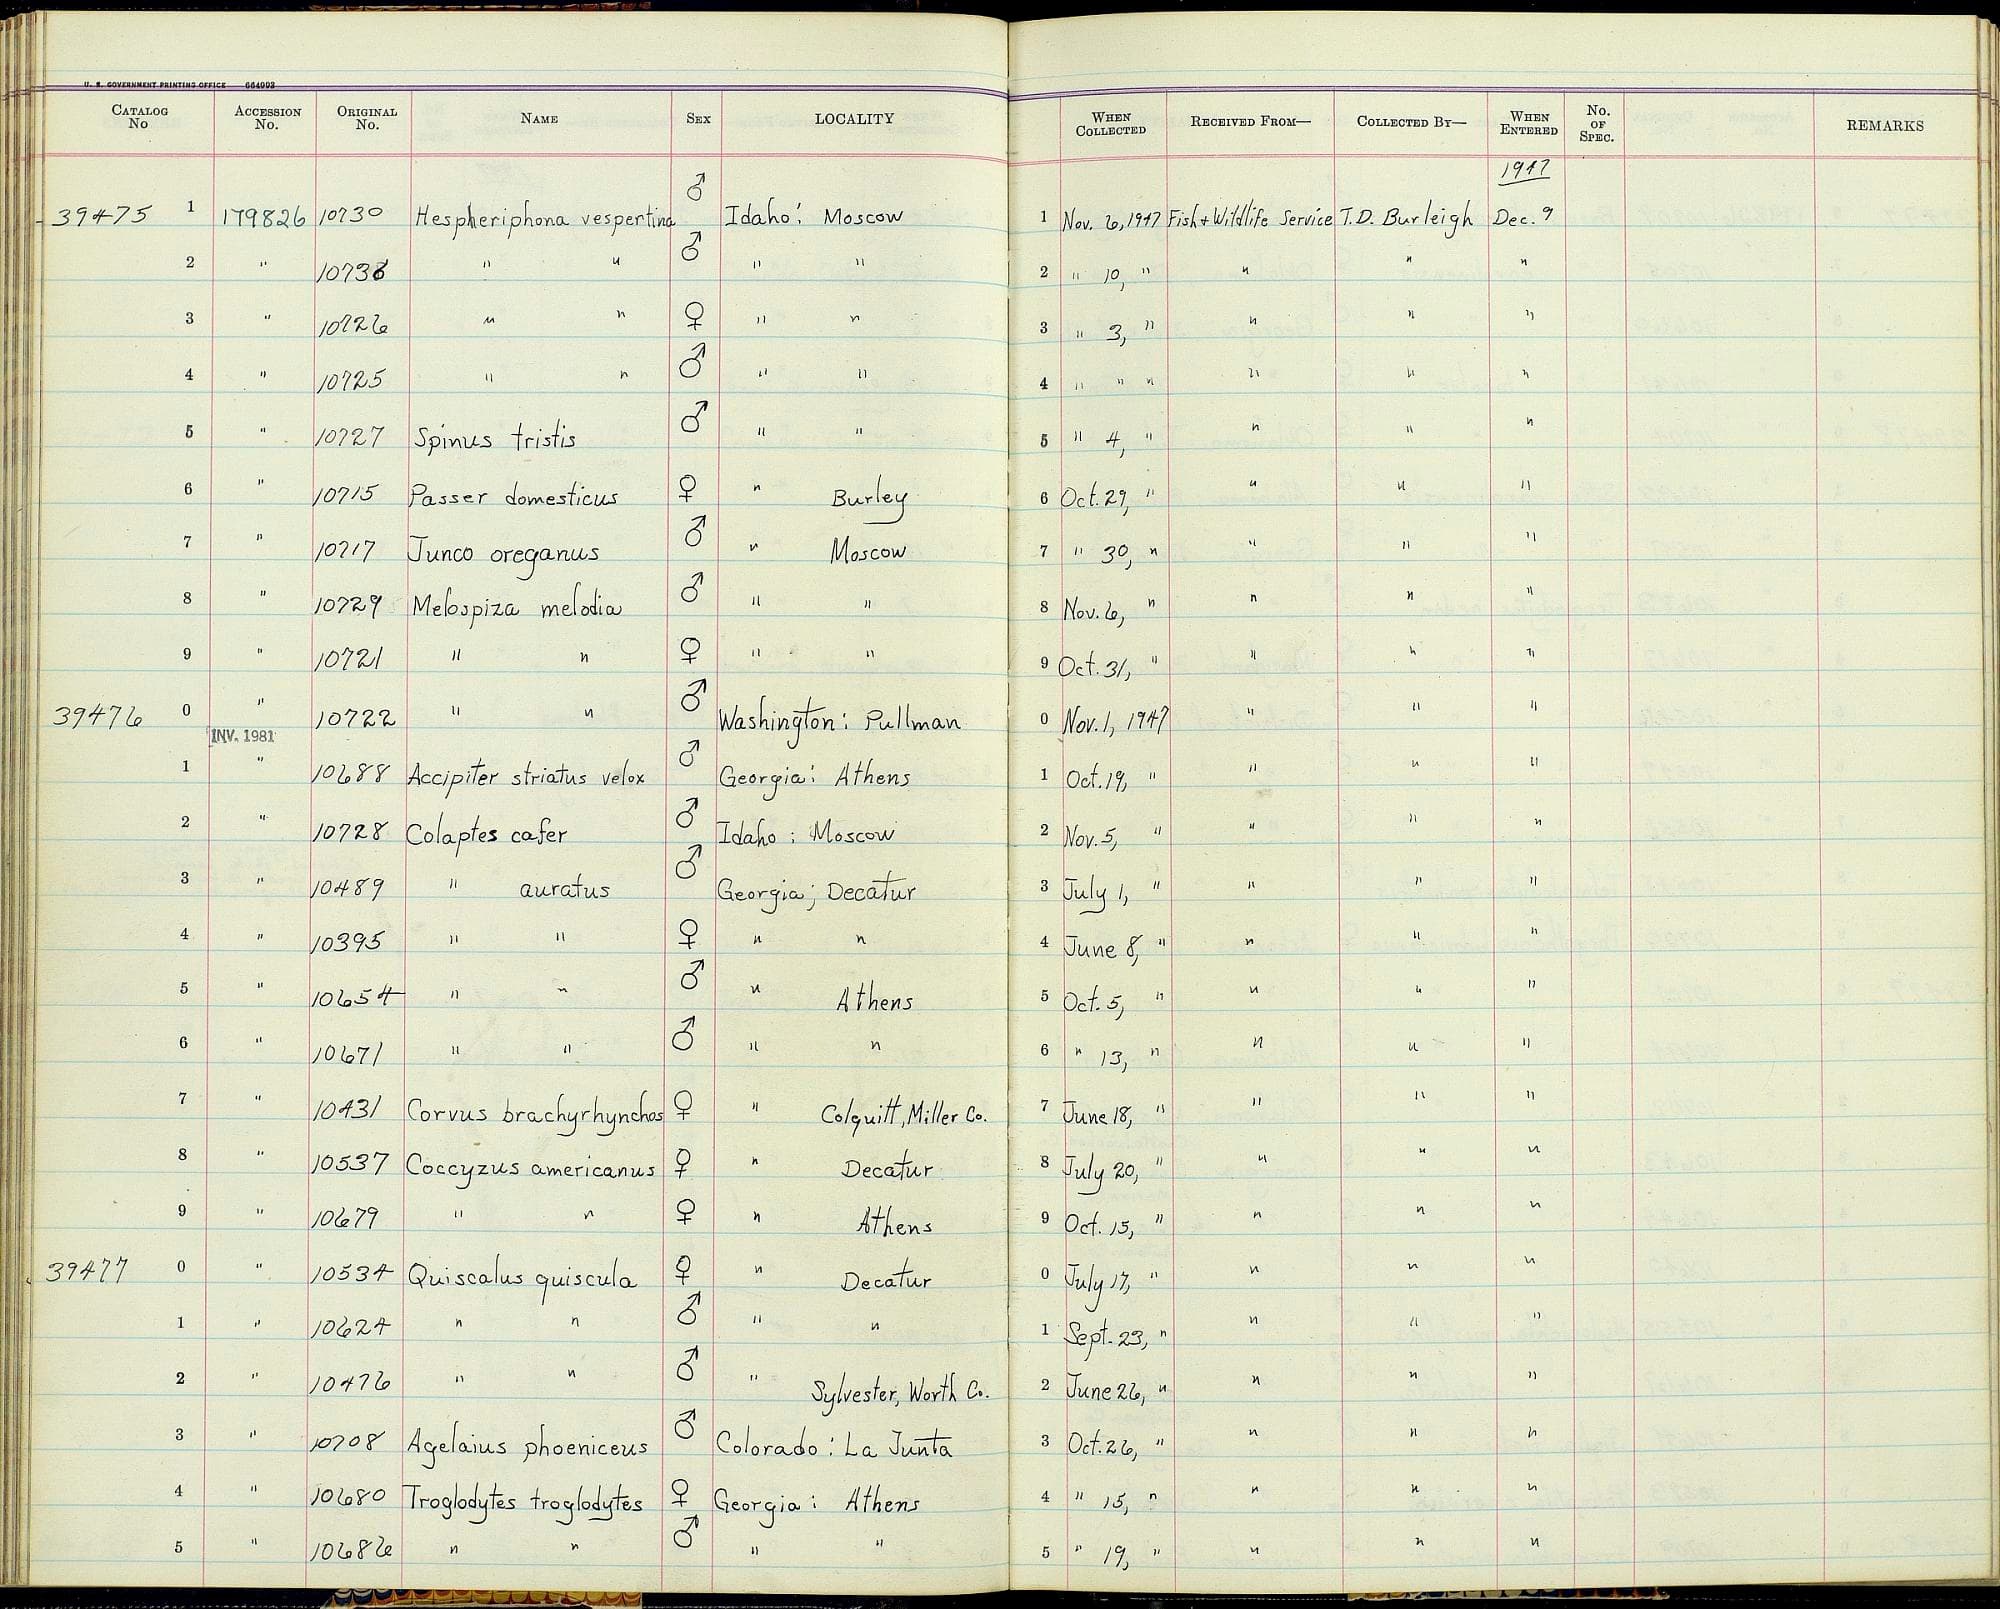 U. S. GOVERNMENT PRINTING OFFICE 664993
CATALOG No ACCESSION No. ORIGINAL No. NAME SEX LOCALITY WHEN COLLECTED RECEIVED FROM— COLLECTED BY— WHEN ENTERED No. OF SPEC. REMARKS
1947
39475 1 179826 10730 Hespheriphona vespertina ♂ Idaho: Moscow 1 Nov. 6, 1947 Fish + Wildlife Service T.D. Burleigh Dec. 9
2 " 10738 " " ♂ " " 2 " 10, " " " "
3 " 10726 " " ♀ " " 3 " 3, " " " "
4 " 10725 " " ♂ " " 4 " " " " " "
5 " 10727 Spinus tristis ♂ " " 5 " 4, " " " "
6 " 10715 Passer domesticus ♀ " Burley 6 Oct. 29, " " " "
7 " 10717 Junco oreganus ♂ " Moscow 7 " 30, " " " "
8 " 10729 Melospiza melodia ♂ " " 8 Nov. 6, " " " "
9 " 10721 " " ♀ " " 9 Oct. 31, " " " "
39476 0 " 10722 " " ♂ Washington: Pullman 0 Nov. 1, 1947 " " "
INV. 1981
1 " 10688 Accipiter striatus velox ♂ Georgia: Athens 1 Oct. 19, " " " "
2 " 10728 Colaptes cafer ♂ Idaho: Moscow 2 Nov. 5, " " " "
3 " 10489 " auratus ♂ Georgia; Decatur 3 July 1, " " " "
4 " 10395 " " ♀ " " 4 June 8, " " " "
5 " 10654 " " ♂ " Athens 5 Oct. 5, " " " "
6 " 10671 " " ♂ " " 6 " 13, " " " "
7 " 10431 Corvus brachyrhynchos ♀ " Colquitt, Miller Co. 7 June 18, " " " "
8 " 10537 Coccyzus americanus ♀ " Decatur 8 July 20, " " " "
9 " 10679 " " ♀ " Athens 9 Oct. 15, " " " "
39477 0 " 10534 Quiscalus quiscula ♀ " Decatur 0 July 17, " " " "
1 " 10624 " " ♂ " " 1 Sept. 23, " " " "
2 " 10476 " " ♂ " Sylvester, Worth Co. 2 June 26, " " " "
3 " 10708 Agelaius phoeniceus ♂ Colorado: La Junta 3 Oct. 26, " " " "
4 " 10680 Troglodytes troglodytes ♀ Georgia: Athens 4 " 15, " " " "
5 " 10686 " " ♂ " " 5 " 19, " " " "